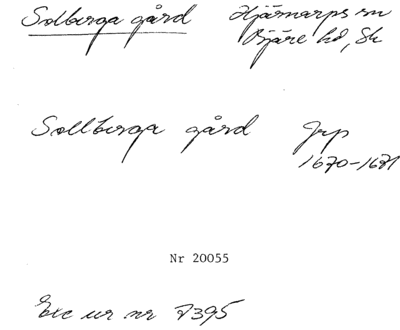 Solberga gård Hjärnarps sn
Bjäre hd, Sk
Sollberga gård Jrp
1670-1671
Nr 20055
Exc ur nr 7395